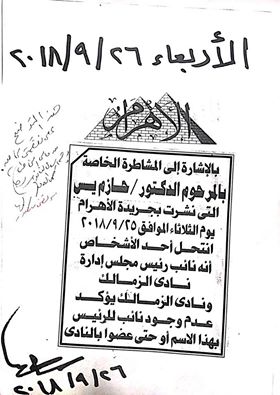 الأربعاء ٢٠١٨/٩/٢٦
الأهرام
بالإشارة إلى المشاطرة الخاصة
بالمرحوم الدكتور/ حازم يس
التى نشرت بجريدة الأهرام
يوم الثلاثاء الموافق ٢٠١٨/٩/٢٥
انتحل أحد الأشخاص
أنه نائب رئيس مجلس إدارة
نادى الزمالك
ونادى الزمالك يؤكد
عدم وجود نائب للرئيس
بهذا الاسم أو حتى عضوا بالنادى
٢٠١٨/٩/٢٦